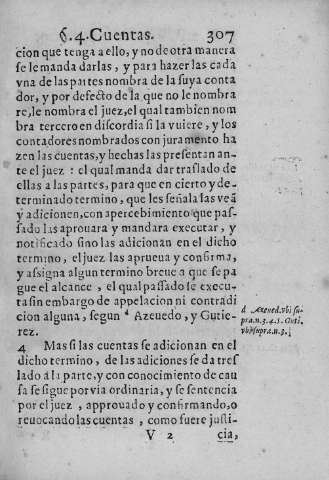 §. 4. Cuentas. 307
cion que tenga a ello, y no de otra manera
se le manda darlas, y para hazer las cada
vna de las partes nombra de la suya conta
dor, y por defecto de la que no le nombra
re, le nombra el juez, el qual tambien nom
bra tercero en discordia si la vuiere, y los
contadores nombrados con juramento ha
zen las cuentas, y hechas las presentan an-
te el juez: el qual manda dar traslado de
ellas a las partes, para que en cierto y de-
terminado termino, que les señala las veã
y adicionen, con apercebimiento que pas-
sado las aprouara y mandara executar, y
notificado sino las adicionan en el dicho
termino, el juez las aprueua y confirma,
y assigna algun termino breue a que se pa
gue el alcance, el qual passado le execu-
ta sin embargo de appelacion ni contradi
cion alguna, segun d Azeuedo, y Gutie-
rez.
d Azeued. vbi su-
pra. n. 3. 4. 5. Guti.
vbi supra. n. 3.
4 Mas si las cuentas se adicionan en el
dicho termino, de las adiciones se da tres
lado a la parte, y con conocimiento de cau
sa se sigue por via ordinaria, y se sentencia
por el juez, approuado y confirmando, o
reuocando las cuentas, como fuere justi-
V 2 cia,